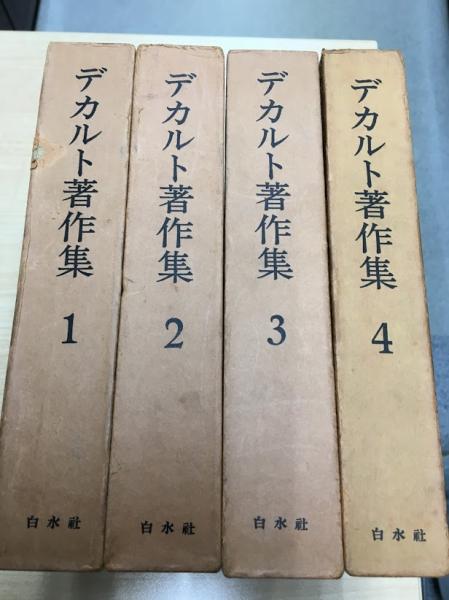 デカルト著作集
1
白水社
デカルト著作集
2
白水社
デカルト著作集
3
白水社
デカルト著作集
4
白水社